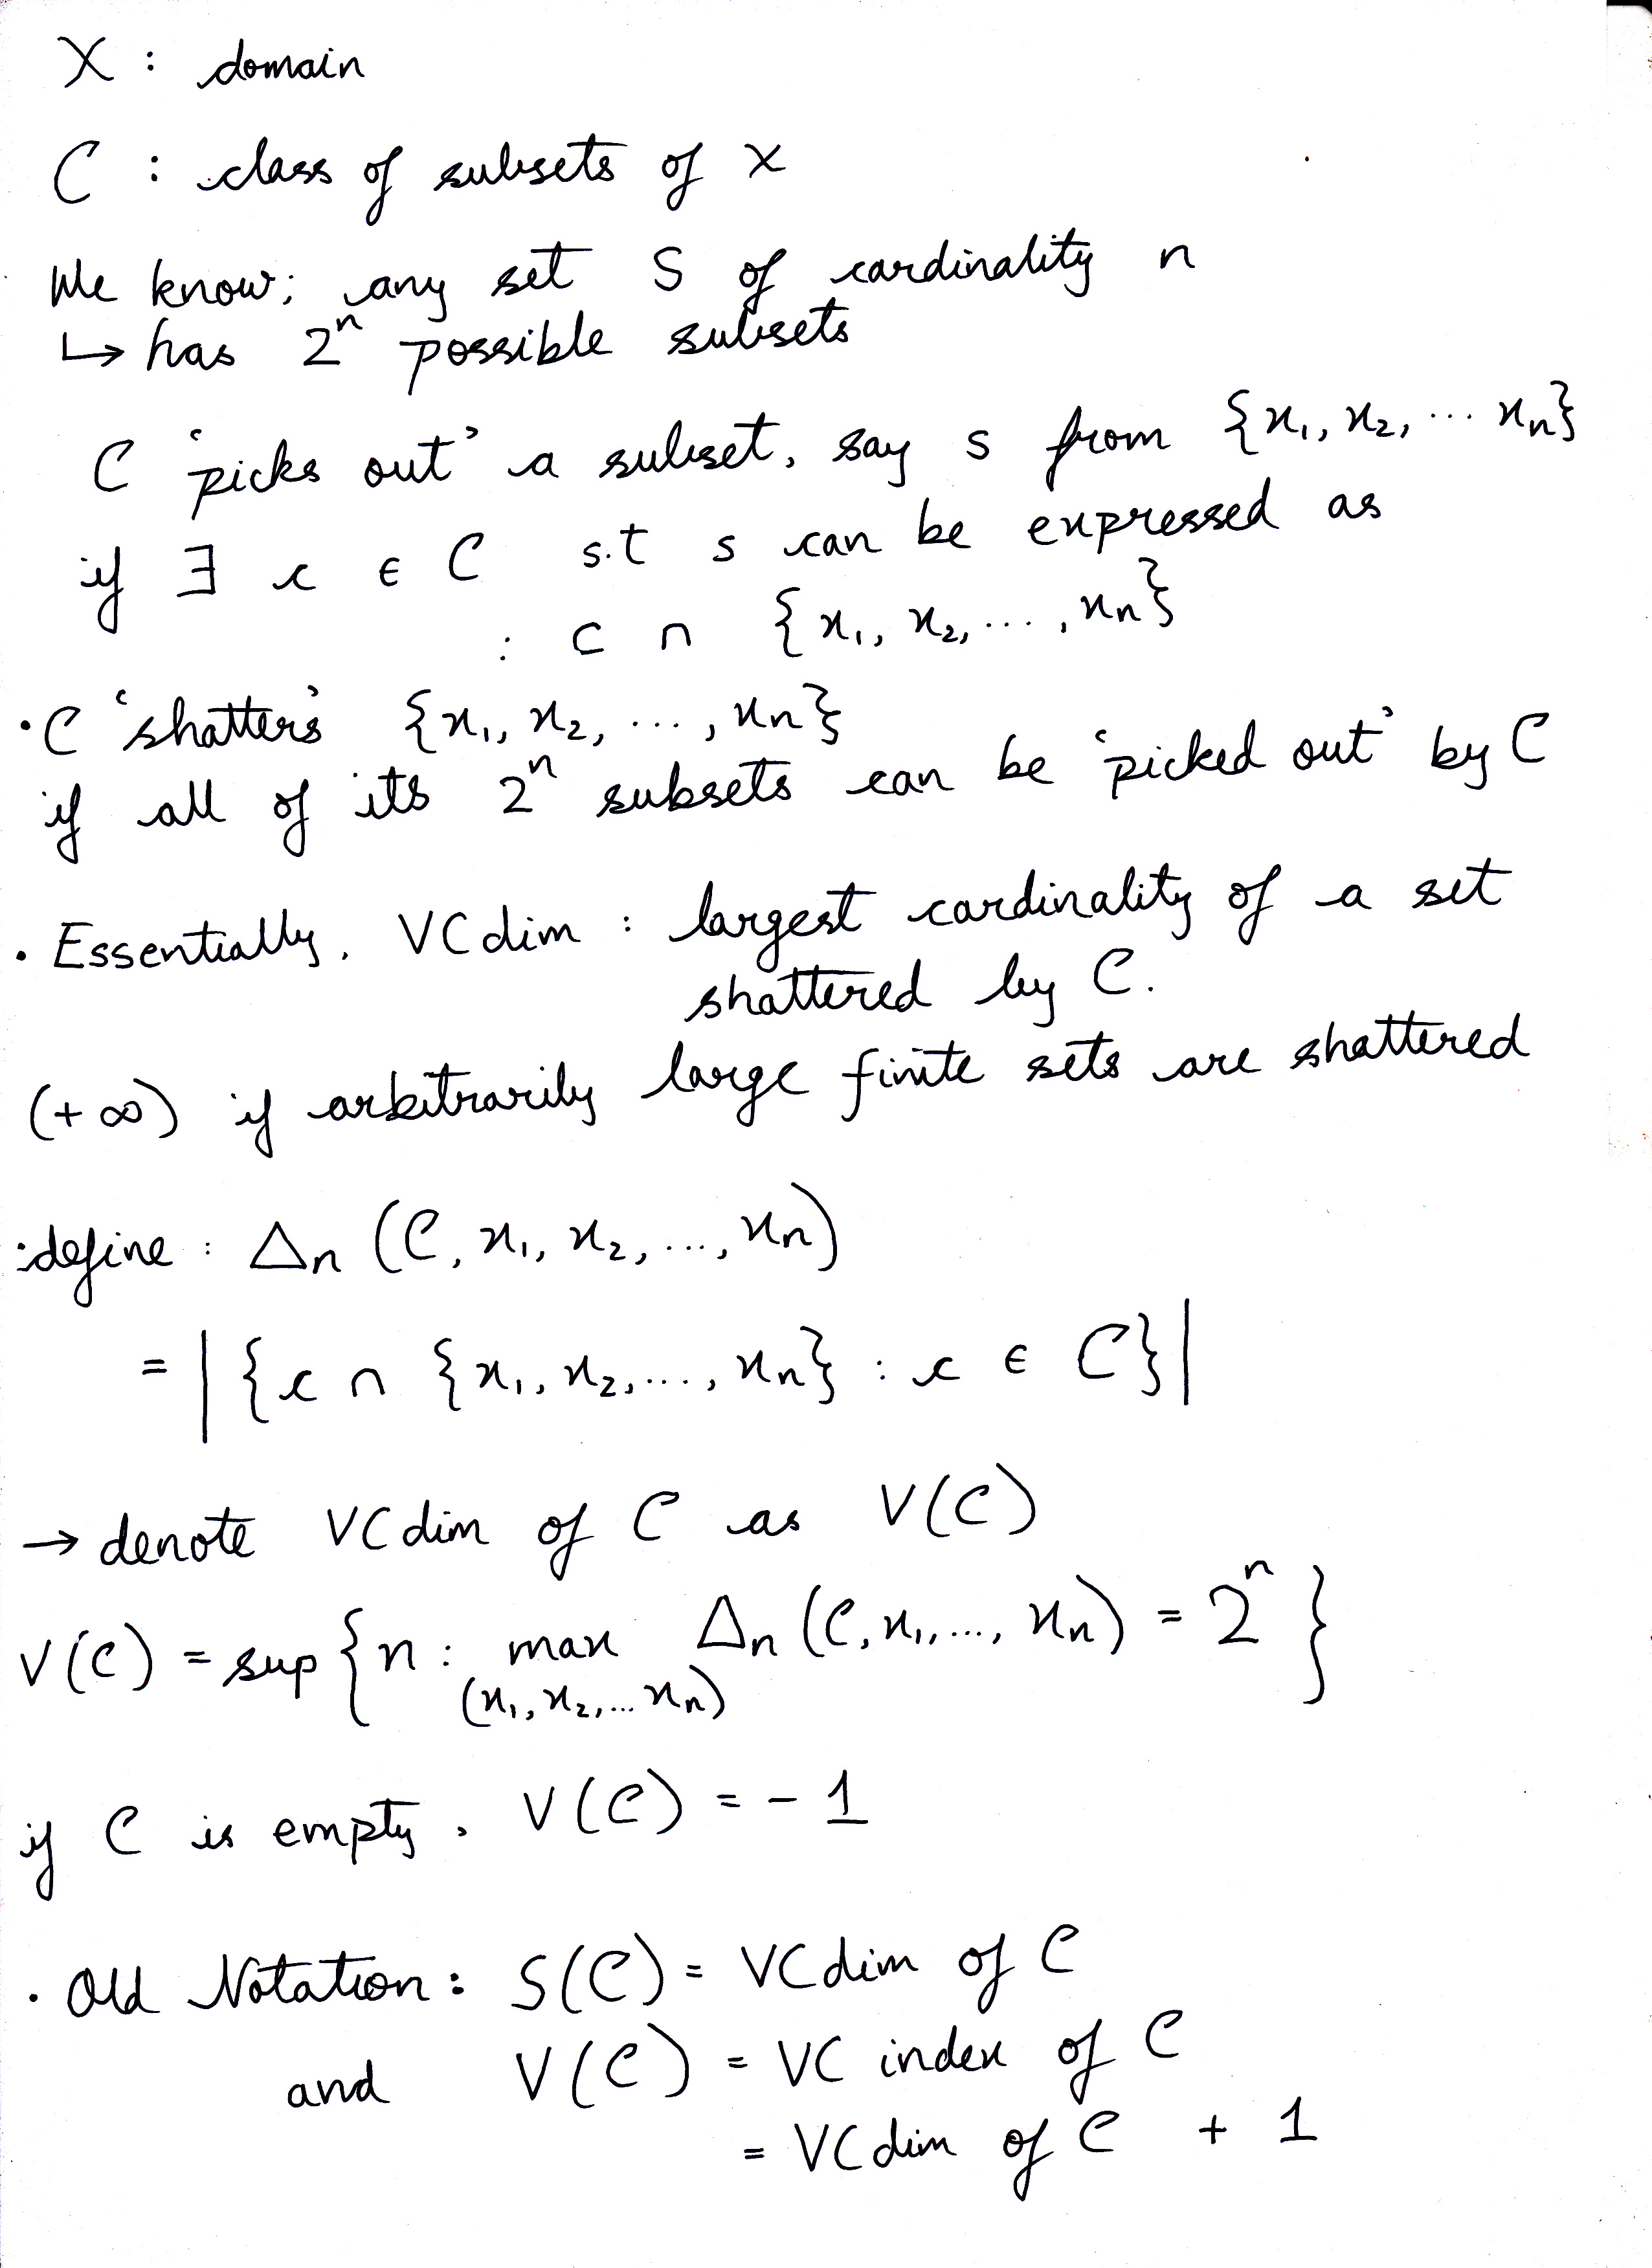 X : domain
C : class of subsets of X
We know; any set S of cardinality n
↳ has 2ⁿ possible subsets
C 'picks out' a subset, say s from {x₁, x₂, ... xₙ}
if ∃ c ∈ C s.t s can be expressed as
: c ∩ {x₁, x₂, ..., xₙ}
• C 'shatters' {x₁, x₂, ..., xₙ}
if all of its 2ⁿ subsets can be 'picked out' by C
• Essentially, VCdim : largest cardinality of a set
shattered by C.
(+∞) if arbitrarily large finite sets are shattered
:define : Δₙ (C, x₁, x₂, ..., xₙ)
= |{c ∩ {x₁, x₂, ..., xₙ} : c ∈ C}|
→ denote VCdim of C as V(C)
V(C) = sup {n : max Δₙ (C, x₁, ..., xₙ) = 2ⁿ}
(x₁, x₂, ... xₙ)
if C is empty, V(C) = - 1
• Old Notation: S(C) = VCdim of C
and V(C) = VC index of C
= VCdim of C + 1